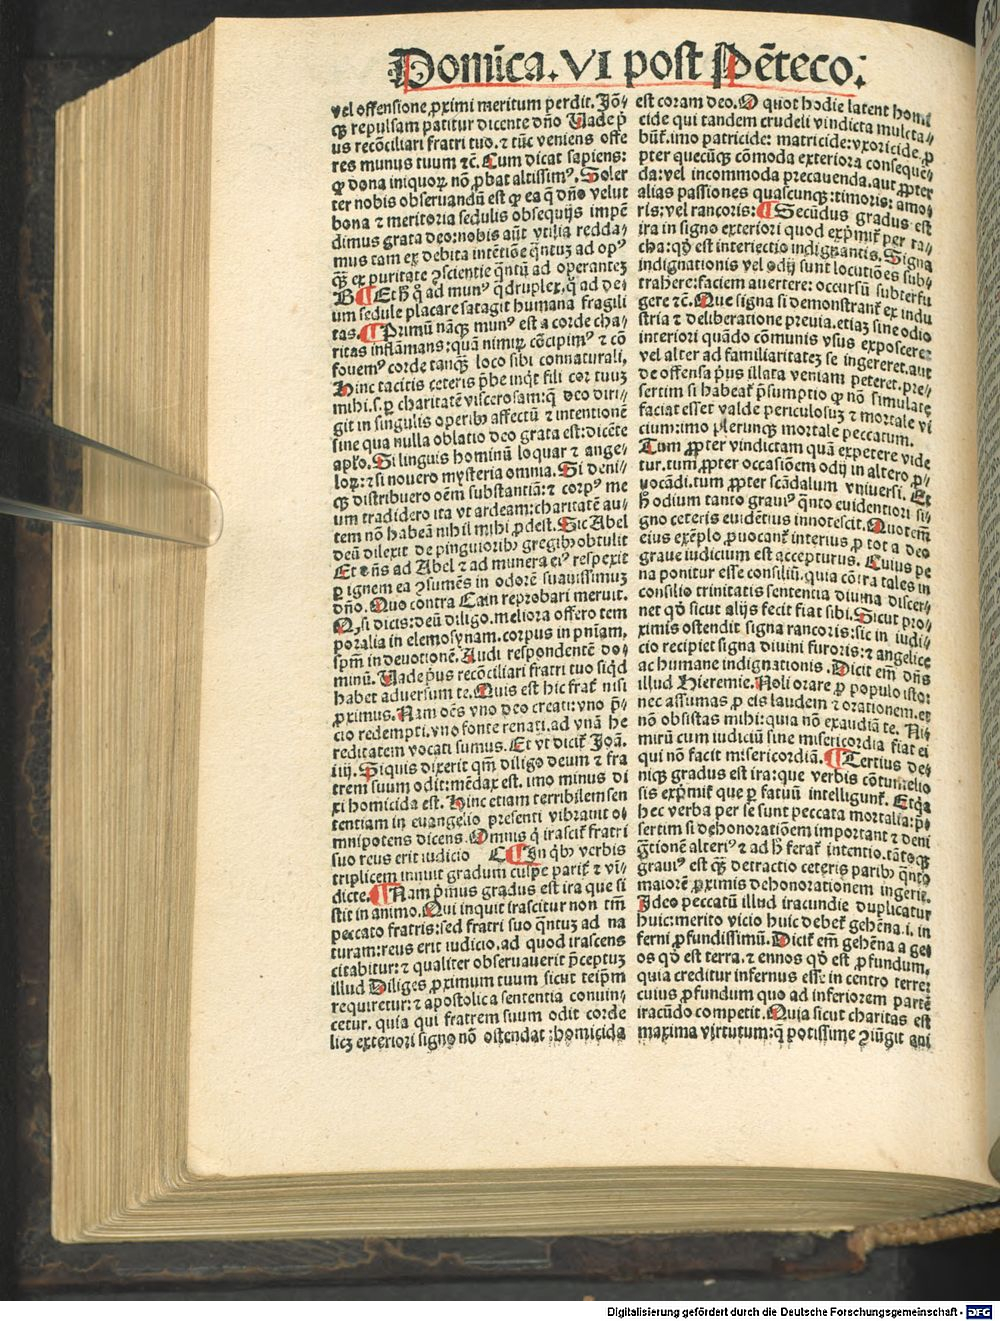 Domĩca. VI post Pẽteco:
vel offensione ꝓximi meritum perdit. Jõ⸗
qꝫ repulsam patitur dicente dño Uade p̃
us recõciliari fratri tuo. ⁊ tũc veniens offe
res munus tuum ⁊č. Cum dicat sapiens:
ꝙ dona iniquoꝝ nõ ꝓbat altissimꝰ. Soler
ter nobis obseruandũ est ꝙ ea q̃ dño velut
bona ⁊ meritoria sedulis obsequijs impẽ
dimus grata deo: nobis aũt vtilia redda⸗
mus tam ex debita intẽtiõe q̃ntuꝫ ad opꝰ
qꝫ̃ ex puritate ꝯscientie q̃ntũ ad operanteꝫ
B ¶ Et h̃ q̃ ad munꝰ q̃druplex, q̃ ad de⸗
um sedule placare satagit humana fragili
tas. ¶ Primũ nãqꝫ munꝰ est a corde cha⸗
ritas inflãmans: quã nimiꝝ cõcipimꝰ ⁊ cõ
fouemꝰ corde tanqꝫ̃ loco sibi connaturali,
Hinc tacitis ceteris p̃be inq̃t fili cor tuuꝫ
mihi. s. ꝑ charitatẽ viscerosam: q̃ deo diri⸗
git in singulis operibꝰ affectũ ⁊ intentionẽ
sine qua nulla oblatio deo grata est: dicẽte
apl̃o. Si linguis hominũ loquar ⁊ ange⸗
loꝝ: ⁊ si nouero mysteria omnia. Si deni⸗
qꝫ distribuero oẽm substantiã: ⁊ corpꝰ me
um tradidero ita vt ardeam: charitatẽ au⸗
tem nõ habeã nihil mihi ꝓdest. Sic Abel
deũ dilexit de pinguioribꝰ gregibꝰ obtulit
Et dñs ad Abel ⁊ ad munera eiꝰ respexit
ꝑ ignem ea ꝯsumẽs in odorẽ suauissimuꝫ
dño. Quo contra Cain reprobari meruit.
Q, si dicis: deũ diligo. meliora offero tem
poralia in elemosynam. corpus in pñiam,
sp̃m in deuotionẽ. Audi respondentẽ do⸗
minũ. Uade p̃us recõciliari fratri tuo siq̃d
habet aduersum te. Quis est hic frat̃ nisi
ꝓximus. Nam oẽs vno deo creati: vno p̃⸗
cio redempti. vno fonte renati. ad vnã he
reditatem vocati sumus. Et vt dicit̃ Joã.
iiij. Siquis dixerit qm̃ diligo deum ⁊ fra
trem suum odit: mẽdax est. imo minus di
xi homicida est. Hinc etiam terribilem sen
tentiam in euangelio presenti vibrauit o⸗
mnipotens dicens. Omnis q̃ irascit̃ fratri
suo reus erit iudicio C ¶ In q̃bꝰ verbis
triplicem innuit gradum culpe parit̃ ⁊ vĩ⸗
dicte. ¶ Nam p̃mus gradus est ira que si
stit in animo. Qui inquit irascitur non tm̃
peccato fratris: sed fratri suo q̃ntuꝫ ad na
turam: reus erit iudicio. ad quod irascens
citabitur: ⁊ qualiter obseruauerit p̃ceptuꝫ
illud Diliges ꝓximum tuum sicut teip̃m
requiretur: ⁊ apostolica sententia conuin⸗
cetur. quia qui fratrem suum odit corde
licꝫ exteriori signo nõ ostendat: homicida
est coram deo. O quot hodie latent homi
cide qui tandem crudeli vindicta mulcta⸗
bũt̃. imo patricide: matricide: vxoricide. ꝓ
pter quecũqꝫ cõmoda exteriora consequẽ⸗
da: vel incommoda precauenda. aut ꝓpter
alias passiones quascunqꝫ: timoris: amo⸗
ris: vel rancoris: ¶ Secũdus gradus est
ira in signo exteriori quod exp̃mit̃ per ra⸗
cha: qđ est interiectio indignantis. Signa
indignationis vel odij sunt locutiões sub⸗
trahere: faciem auertere: occursũ subterfu
gere ⁊č. Que signa si demonstrant̃ ex indu
stria ⁊ deliberatione preuia. etiaꝫ sine odio
interiori quãdo cõmunis vsus exposceret
vel alter ad familiaritateꝫ se ingereret. aut
de offensa p̃us illata veniam peteret. pre⸗
sertim si habeat̃ p̃sumptio ꝙ nõ simulate
faciat esset valde periculosuꝫ ⁊ mortale vi
cium: imo plerunqꝫ mortale peccatum.
Tum ꝓpter vindictam quã expetere vide
tur. tum ꝓpter occasiõem odij in altero ꝓ⸗
uocãdi. tum ꝓpter scãdalum vniuersi. Et
h̃ odium tanto grauiꝰ q̃nto euidentiori si⸗
gno ceteris euidẽtius innotescit. Quotem̃
eius exẽplo ꝓuocant̃ interius ꝓ tot a deo
graue iudicium est accepturus. Cuius pe
na ponitur esse consiliũ. quia cõtra tales in
consilio trinitatis sententia diuina discer⸗
net qđ sicut alijs fecit fiat sibi. Sicut pro⸗
ximis ostendit signa rancoris: sic in iudi⸗
cio recipiet signa diuini furoris: ⁊ angelice
ac humane indignationis. Dicit em̃ dñs
illud Hieremie. Noli orare ꝓ populo isto:
nec assumas ꝓ eis laudem ⁊ orationem. et
nõ obsistas mihi: quia nõ exaudiã te. Ni⸗
mirũ cum iudiciũ sine misericordia fiat ei
qui nõ facit misericordiã. ¶ Tertius de⸗
niqꝫ gradus est ira: que verbis cõtumelio
sis exp̃mit̃ que ꝑ fatuũ intelligunt̃. Et q̃a
hec verba per se sunt peccata mortalia: p̃⸗
sertim si dehonoratiõem important ⁊ deni
g̃tionẽ alteriꝰ ⁊ ad h̃ ferat̃ intentio. tãtoqꝫ
grauiꝰ est qꝫ̃ detractio ceteris paribꝰ q̃nto
maiorẽ ꝓximis dehonorationem ingerit.
Ideo peccatũ illud iracundie duplicatur
huic: merito vicio huic debet̃ gehẽna. i. in
ferni ꝓfundissimũ. Dicit̃ em̃ gehẽna a ge⸗
os qđ est terra. ⁊ ennos qđ est ꝓfundum,
quia creditur infernus esse in centro terre:
cuius ꝓfundum quo ad inferiorem partẽ
iracũdo competit. Quia sicut charitas est
maxima virtutum: q̃ potissime ꝯiũgit ani
Digitalisierung gefördert durch die Deutsche Forschungsgemeinschaft - DFG